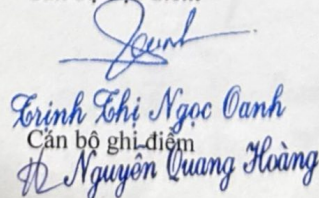 Trịnh Thị Ngọc Oanh
Cán bộ ghi điểm
Nguyễn Quang Hoàng